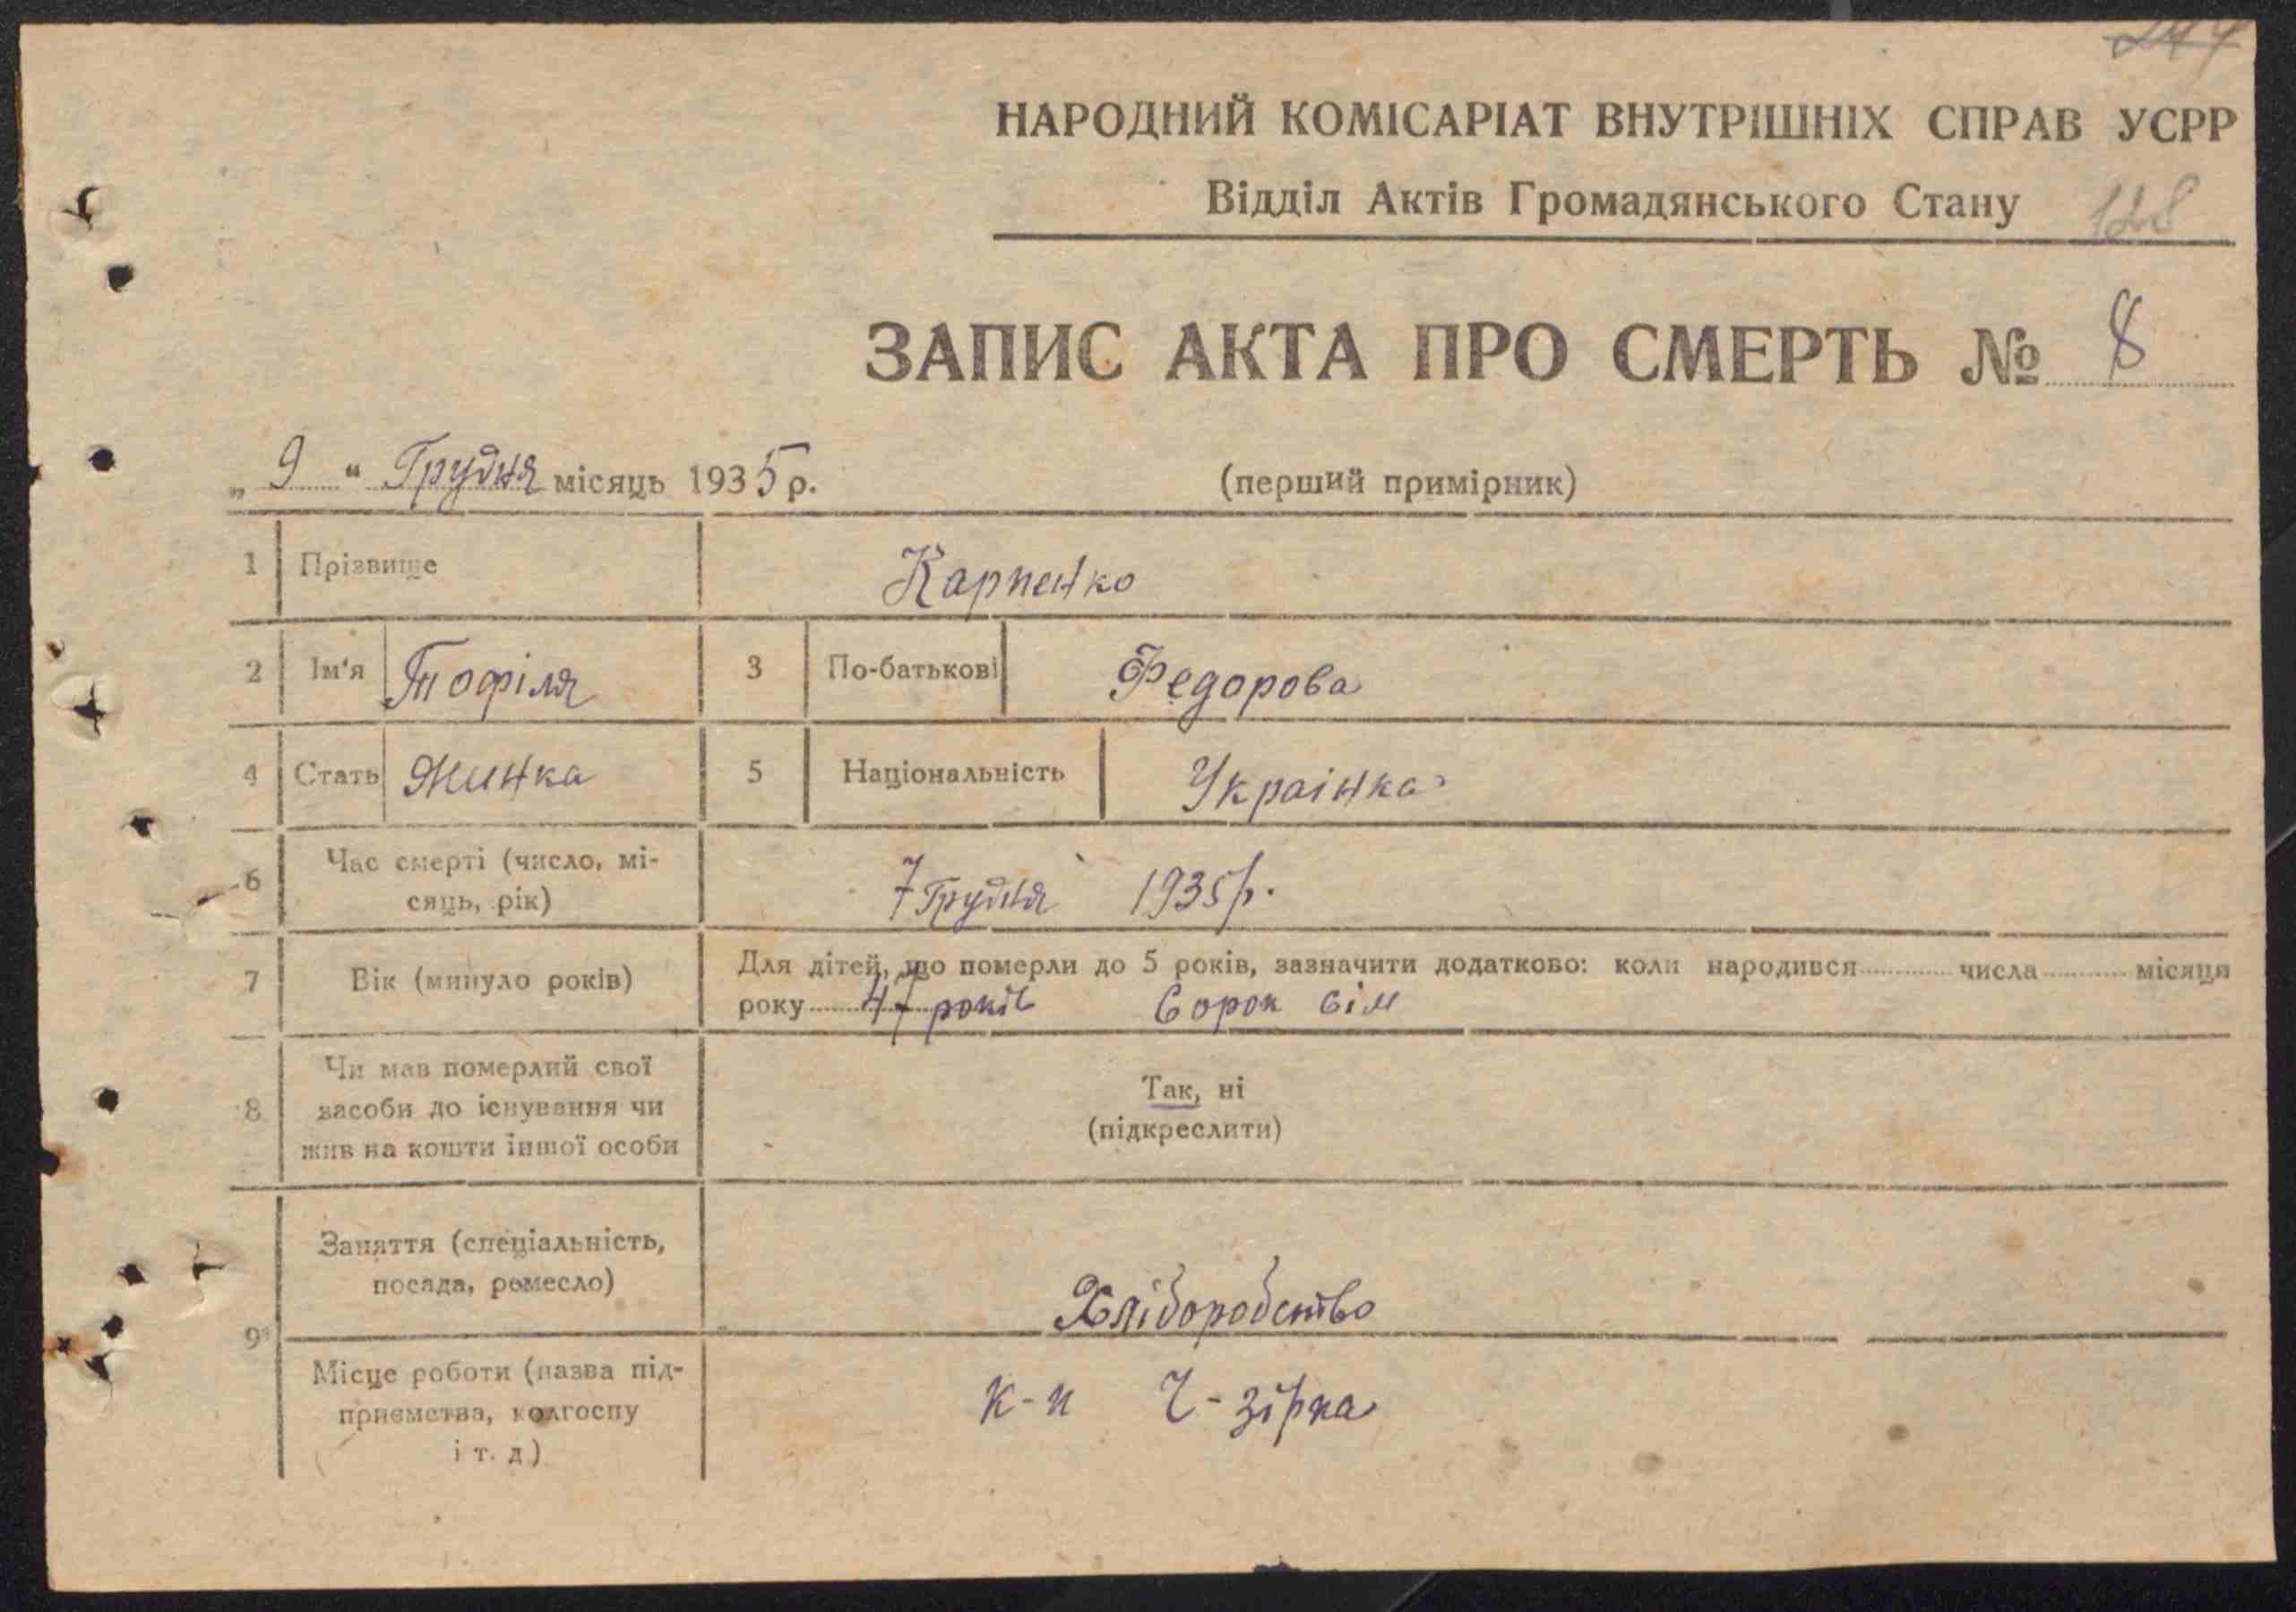 НАРОДНИЙ КОМІСАРІАТ ВНУТРІШНІХ СПРАВ УСРР
Відділ Актів Громадянського Стану 128
ЗАПИС АКТА ПРО СМЕРТЬ № 8
„ 9 “ Грудня місяць 1935 р. (перший примірник)
1 Прізвище Карпенко
2 Ім'я Тофіля 3 По-батькові Федорова
4 Стать Жинка 5 Національність Українка
6 Час смерті (число, мі-
сяць, рік) 7 Грудня 1935 р.
7 Вік (минуло років) Для дітей, що померли до 5 років, зазначити додатково: коли народився числа місяця
року 47 років Сорок сім
8 Чи мав померлий свої
засоби до існування чи
жив на кошти іншої особи
Так, ні
(підкреслити)
9 Заняття (спеціальність,
посада, ремесло) Хліборобство
Місце роботи (назва під-
приємства, колгоспу
і т. д) к-п Ч-зірка